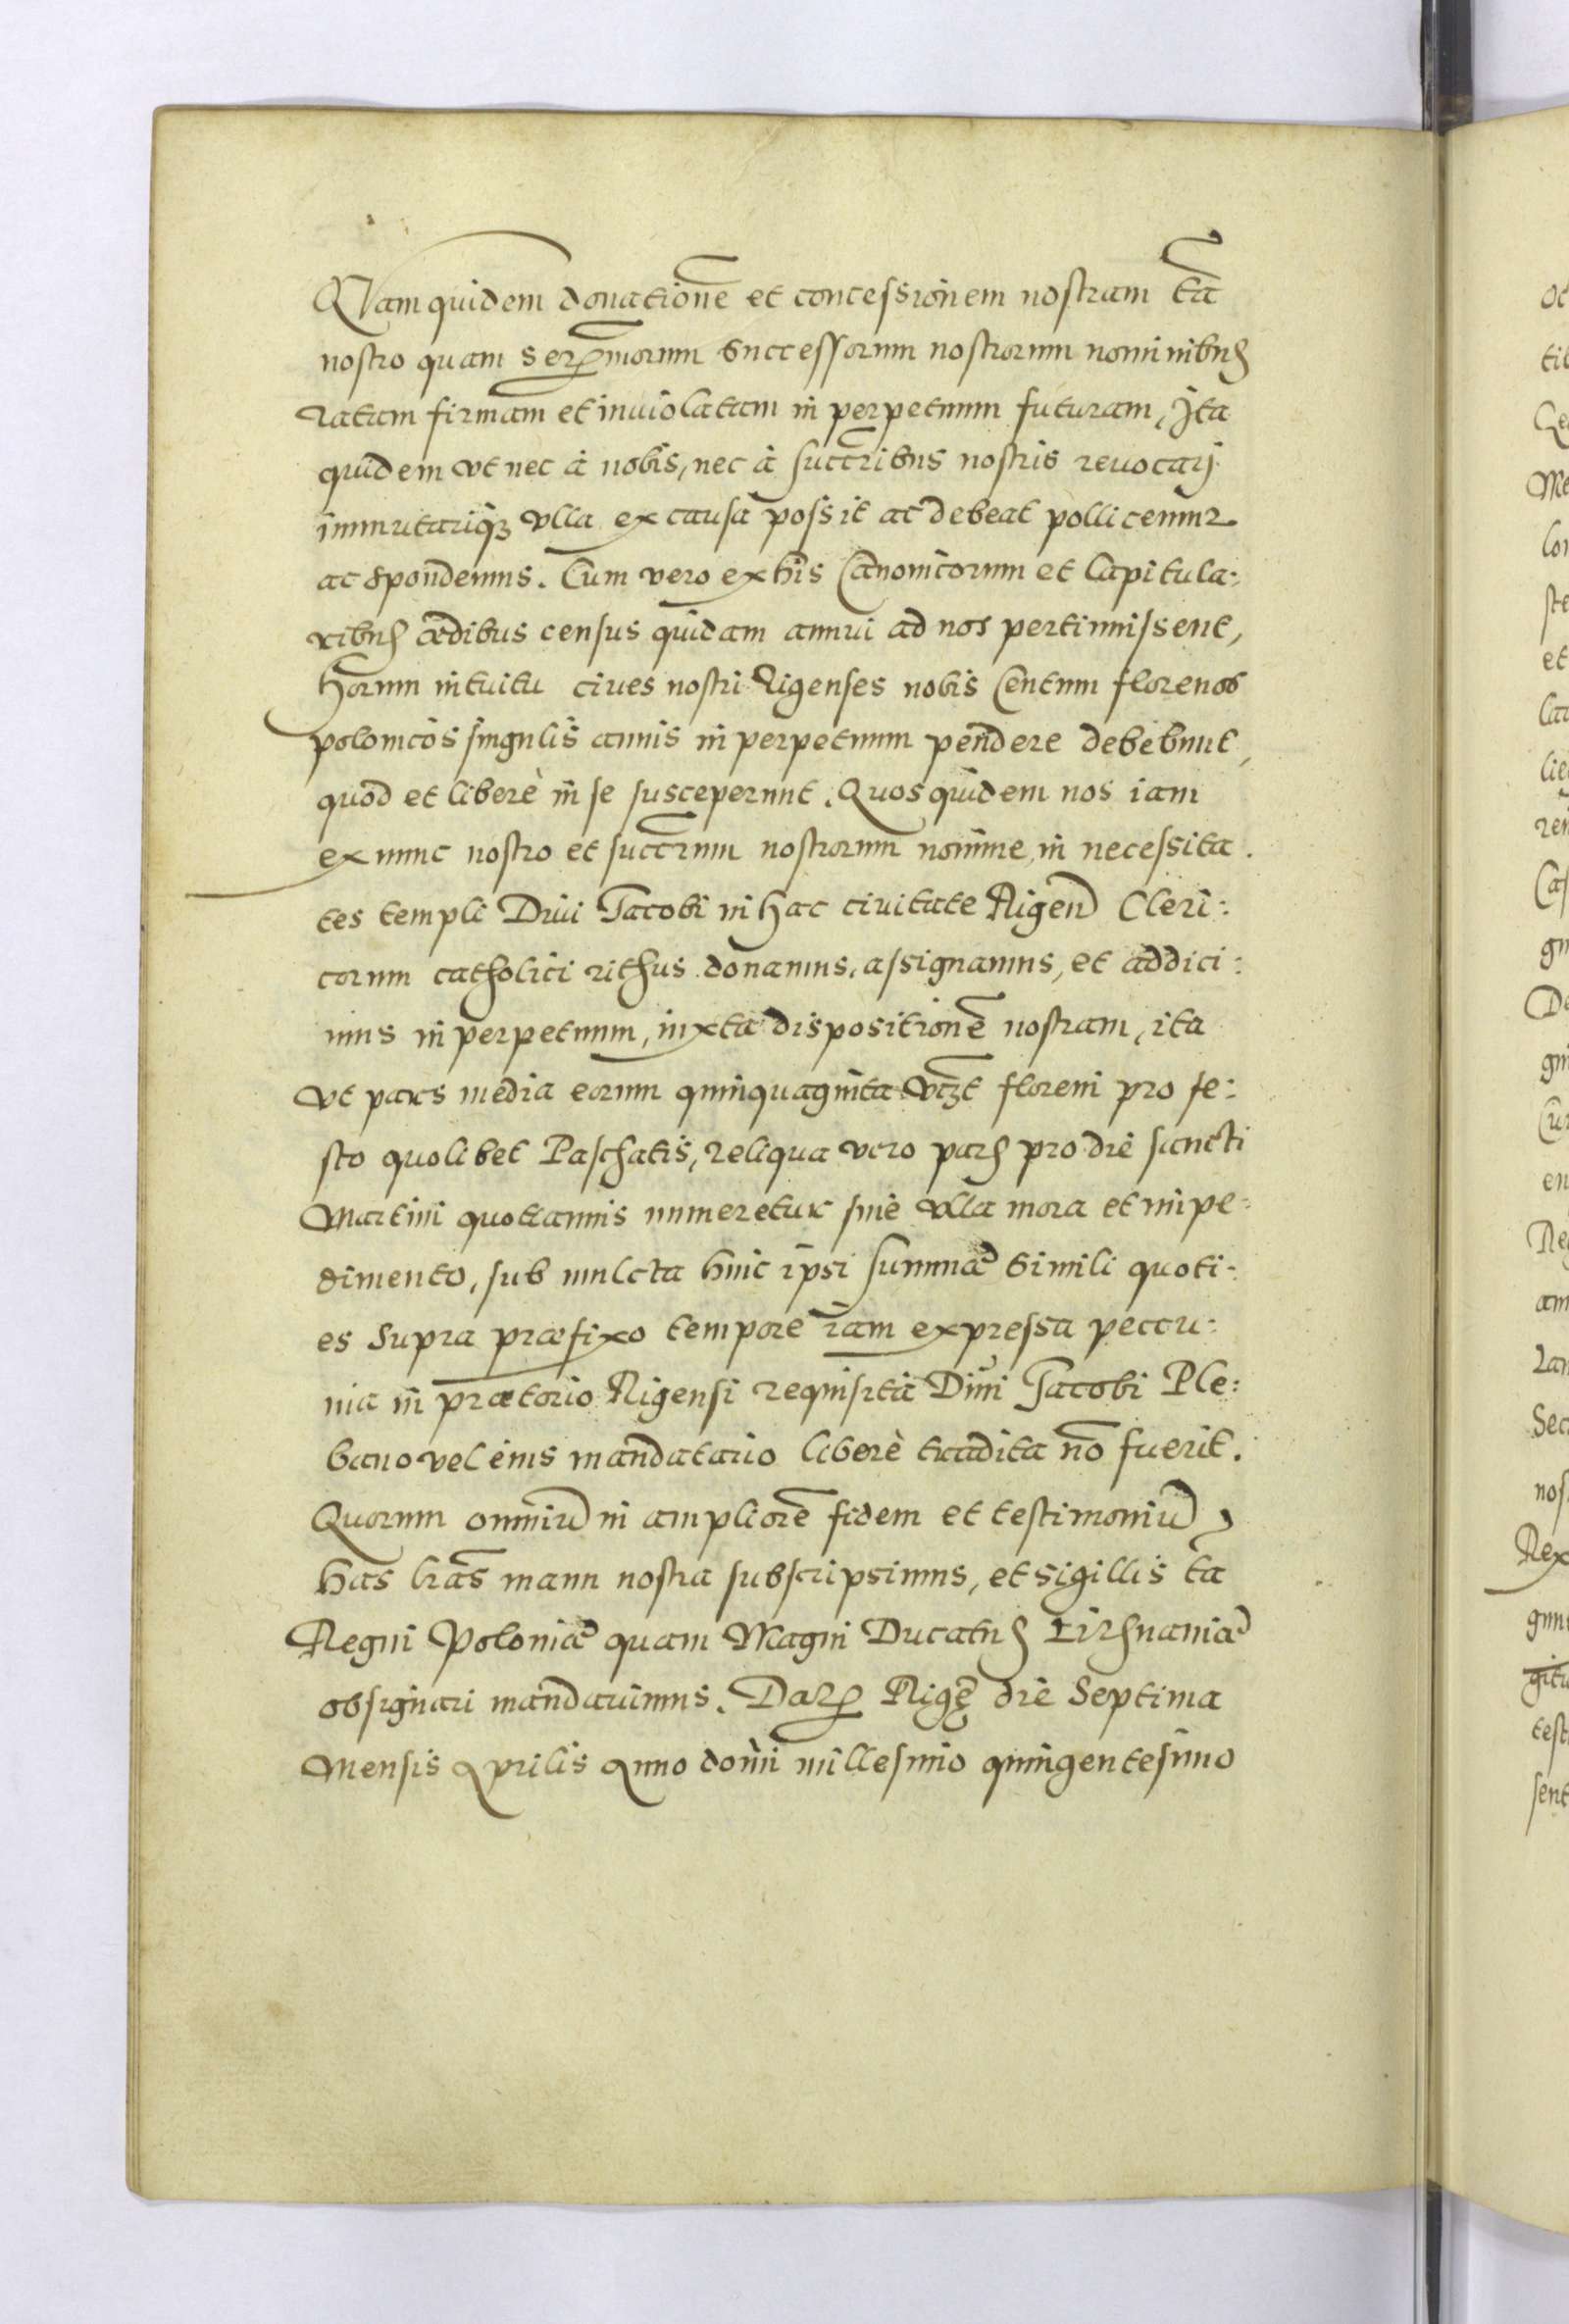 QVam quidem donationē et concessionem nostram tā
nostro quam serᵐorum Successorum nostrorum nominibus
ratam firmam et inuiolatam in perpetuum futuram, Ita
quidem vt nec à nobis, nec à succribus nostris reuocarj
immutariq₃ vlla ex causa possit ac debeat pollicemur
ac spondemus. Cum vero ex his Canonicorum et Capitula:
ribus ædibus census quidam annui ad nos pertinuissent,
horum intuitu ciues nostri Rigenses nobis Centum florenos
polonicos singulis annis in perpetuum pendere debebunt,
quod et liberè in se susceperunt. Quos quidem nos iam
ex nunc nostro et succrum nostrorum nomine, in necessita.
tes templi Diui Jacobi in hac ciuitate Rigen̄ Cleri:
corum catholici rithus donamus, assignamus, et addici:
mus in perpetuum, iuxta dispositionē nostram, ita
vt pars media eorum quinquaginta vtzt floreni pro fe:
sto quolibet Paschatis, reliqua vero pars pro die sancti
Martini quotannis numeretur sine vlla mora et impe:
dimento, sub mulcta huic ipsi summæ simili quoti:
es supra præfixo tempore iam expressa peccu:
nia in prætorio Rigensi requisita Diui Jacobi Ple:
bano vel eius mandatario liberè tradita nō fuerit.
Quorum omniū in ampliorē fidem et testimoniū,
has lr̄as manu nostra subscripsimus, et sigillis tā
Regni Poloniæ quam Magni Ducatus Lithuaniæ
obsignari mandauimus. Datū Rigę die Septima
Mensis Aprilis Anno domī millesimo quingentesimo